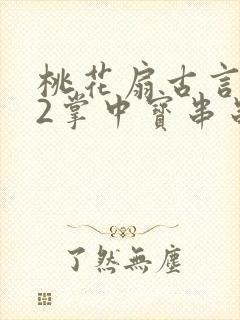 桃花扇古言
2掌中寳串
了然無塵